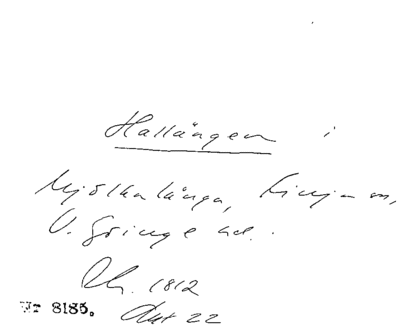 Hallängen i
Mjölkalånga, Finja sn,
V. Göinge hd.
1812
Akt 22
Nr 8185.